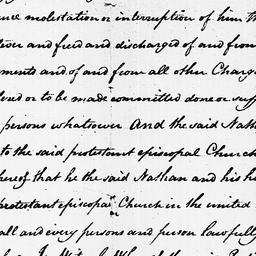 molestation or interruption of him th
and freed and discharged of and from
ments and of and from all other Charge
or to be made committed done or suff
persons whatsoever And the said Nath
to the said protestant episcopal Church
hereof that he the said Nathan and his he
protestant episcopal Church in the united
all and every persons and person lawfully